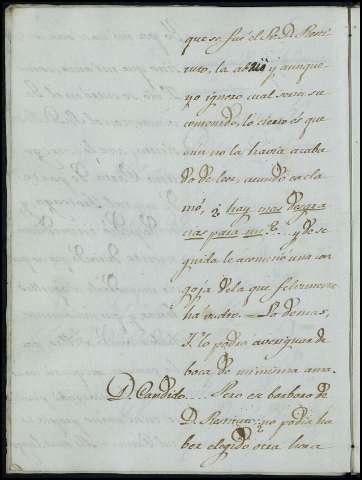 que se fué el Sr. D. Resti
tuto, la abrió y aunque
yo ignoro cual sera su
contenido, lo cierto és que
aun no la havia acaba
do de leer, cuando excla
mó, ¿ hay mas desgra
cias para mi?... y de se
guida le acometió una con
goja de la que felizmente
ha vuelto. Lo demas,
V. lo podrá averiguar de
boca de mi misma ama.
D. Candido.... Pero ese barbaro de
D. Restituto no podia ha
ber elegido otra hora